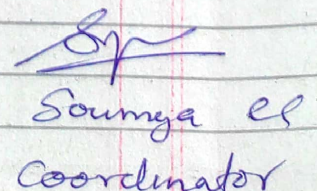 Soumya
Coordinator